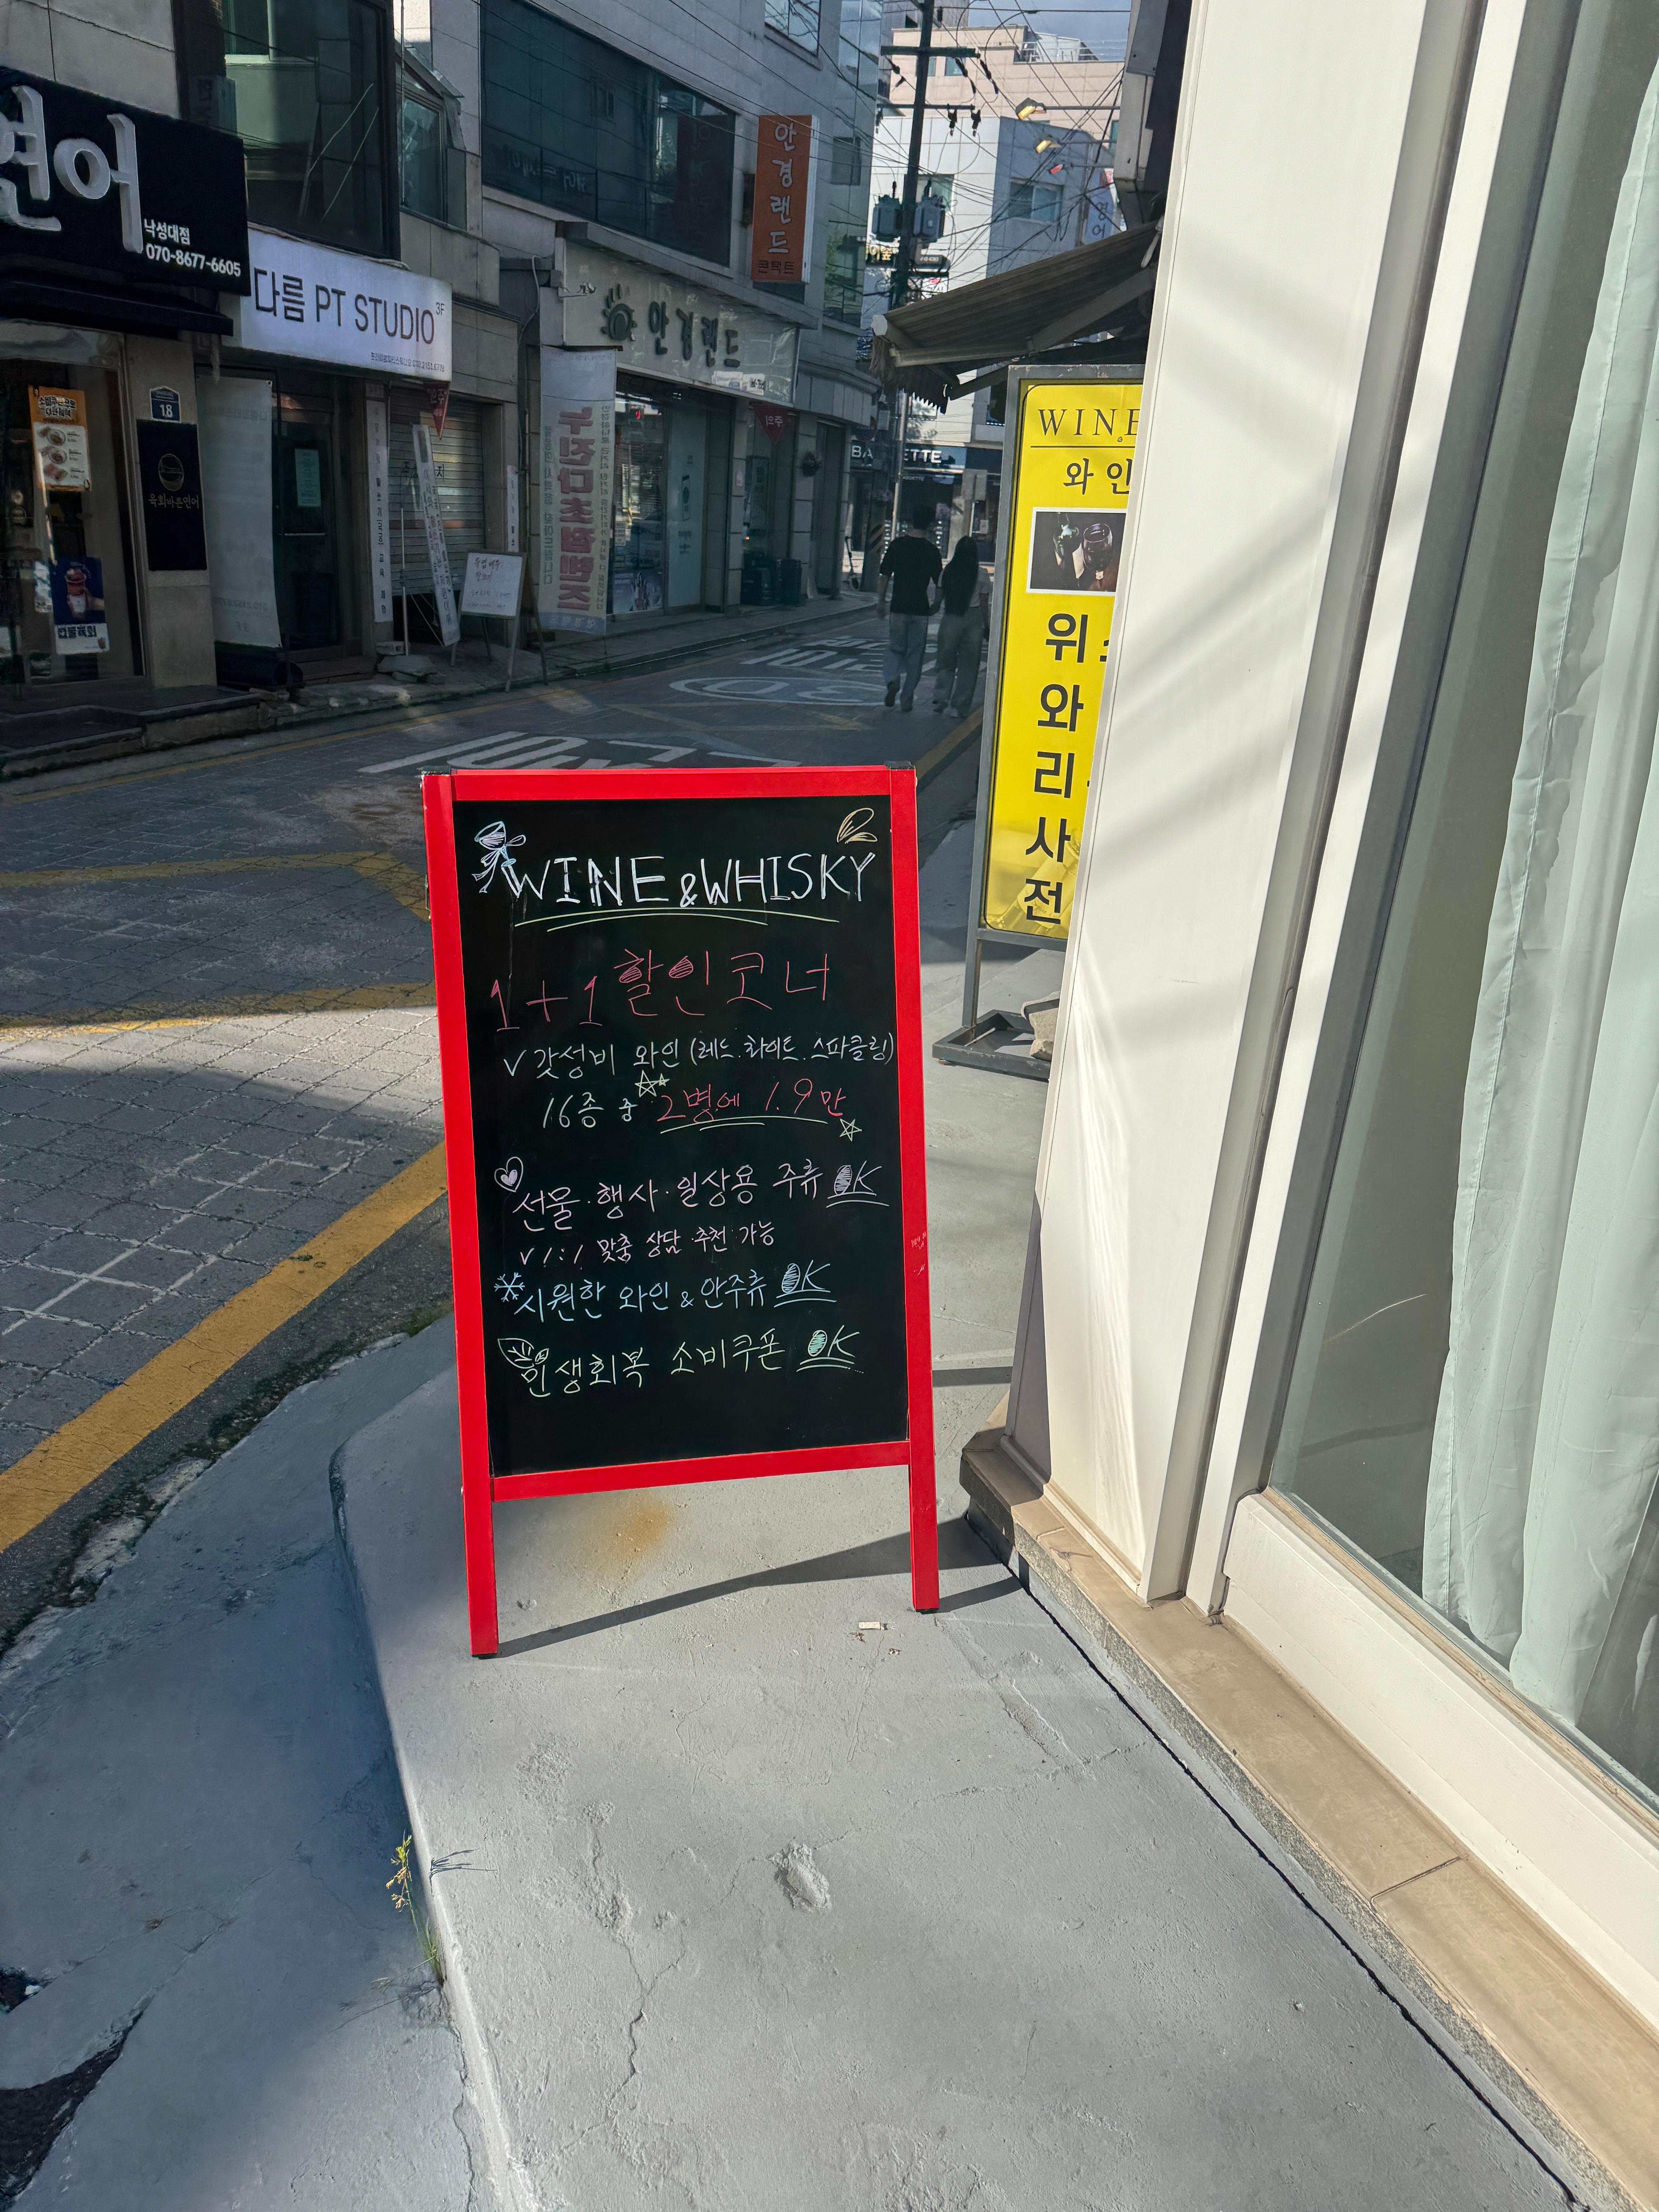 연어
낙성대점
070-8677-6605
다름 PT STUDIO 3F
18
육회바른연어
안경랜드
콘택트
안경랜드
누진다초점렌즈
WINE
와인
위
와
리
사
전
WINE & WHISKY
1+1 할인코너
✓ 갓성비 와인 (레드.화이트.스파클링)
16종 중 2병에 1.9만
선물·행사·일상용 주류 OK
✓ 1:1 맞춤 상담·추천 가능
시원한 와인 & 안주류 OK
민생회복 소비쿠폰 OK